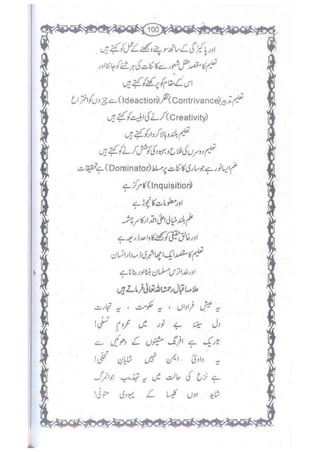 100
اور پاکیزگی کے ساتھ سوچنے دیکھنے کے عمل کو کہتے ہیں
تعلیم کا مقصد عقل و شعور سے کائنات کی ہر شئے کو جاننا اور
اس کے مقام کو پرکھنے کو کہتے ہیں
تعلیم تدبیر (Contrivance) تفکر (Ideaction) سے چیزوں کو اختراع
(Creativity) کرنے کی اہلیت کو کہتے ہیں
تعلیم بلند و بالا کردار کو کہتے ہیں
تعلیم دوسروں کی فلاح و بہبودی کی کوشش کرنے کو کہتے ہیں
علم ایسا نور ہے جو ساری کائنات پر مسلط (Dominator) ہے تحقیقات
(Inquisition) کا مرکز ہے
اور معلومات کا نچوڑ ہے
علم بلند خیالی اعلیٰ اقدار کا سرچشمہ
اور خالق حقیقی کو دیکھنے کا واحد ذریعہ ہے
تعلیم کا مقصد ایک اچھا شہری ذمہ دار انسان
اور خدا ترس مسلمان بننا اور بنانا ہے
علامہ اقبال رحمتہ اللہ تعالیٰ فرماتے ہیں
یہ عیش فراواں، یہ حکومت، یہ تجارت
دل سینۂ بے نور میں محروم تسلی!
تاریک ہے افرنگ مشینوں کے دھوئیں سے
یہ وادیٔ ایمن نہیں شایان تجلی!
ہے نزع کی حالت میں یہ تہذیب جوانمرگ
شاید ہوں کلیسا کے یہودی متولی!